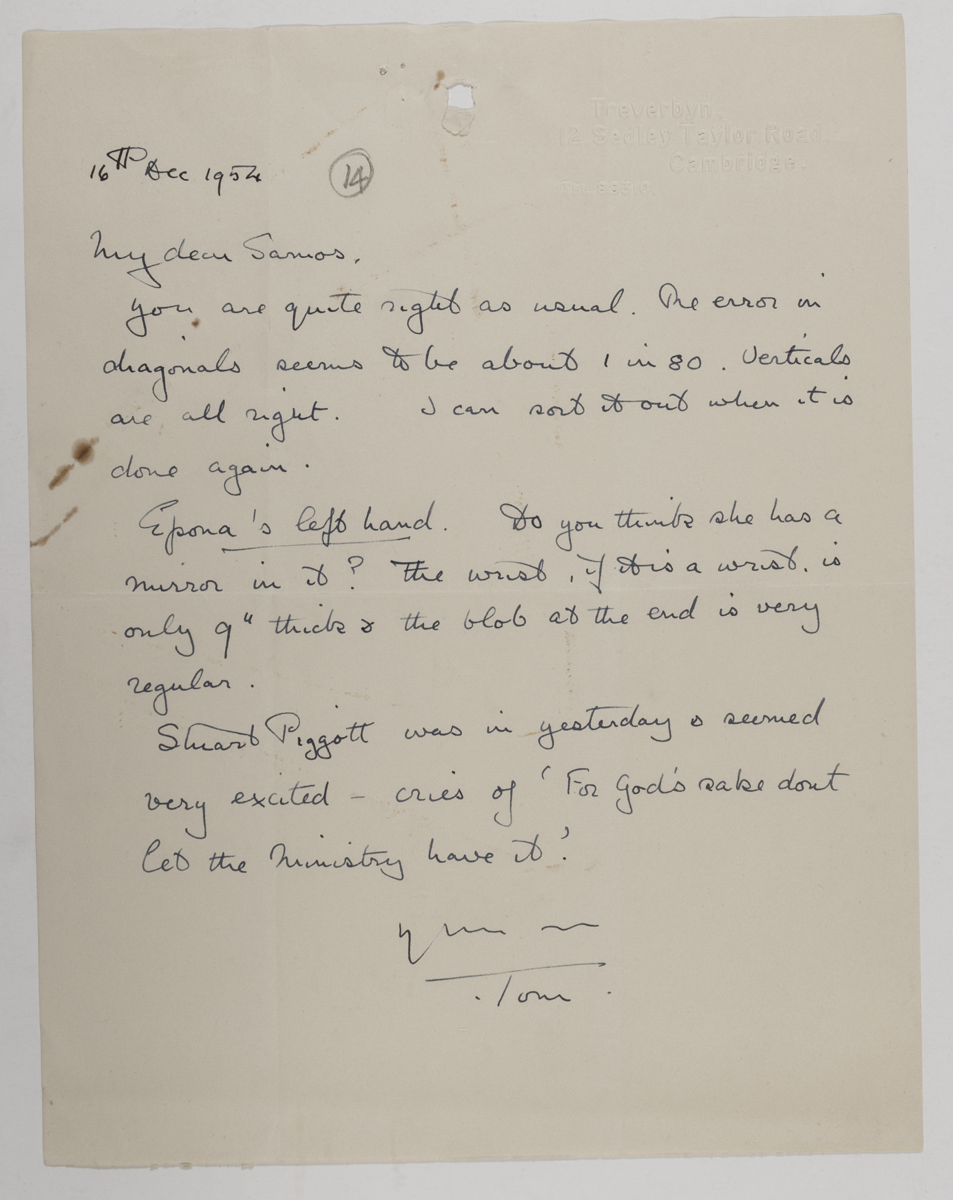 Treverbyn,
12 Sedley Taylor Road
Cambridge.
16TH Dec 1954
14
My dear Samos,
you are quite right as usual. The error in
diagonals seems to be about 1 in 80. Verticals
are all right. I can sort it out when it is
done again.
Epona's left hand. Do you think she has a
mirror in it? The wrist, if it is a wrist, is
only 9" thick & the blob at the end is very
regular.
Stuart Piggott was in yesterday & seemed
very excited – cries of 'For God's sake dont
let the Ministry have it'.
Tom.